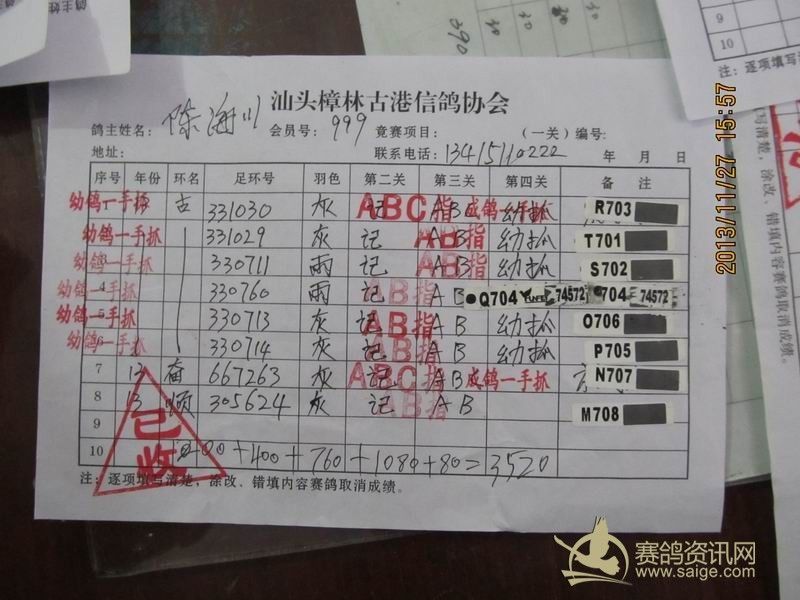 汕头樟林古港信鸽协会
鸽主姓名: 陈海川 会员号: 999 竟赛项目: (一关) 编号:
地址: 联系电话: 13415110222 年 月 日
序号 年份 环名 足环号 羽色 第二关 第三关 第四关 备 注
幼鸽一手抓 古 331030 灰 记 ABC指 AB 成鸽一手抓 幼抓 R703
幼鸽一手抓 331029 灰 记 AB AB指 幼抓 T701
幼鸽一手抓 330711 雨 记 AB AB指 幼抓 S702
4 幼鸽一手抓 330760 雨 记 AB指 AB Q704 74572 704 74572
5 幼鸽一手抓 330713 灰 记 AB指 AB 幼抓 O706
6 幼鸽一手抓 330714 灰 记 AB指 AB 幼抓 P705
7 13 奋 667263 灰 记 ABC指 AB 成鸽一手抓 N707
8 13 顺 305624 灰 记 AB指 AB M708
9
10 00+400+760+1080+80=3520
已收
注: 逐项填写清楚, 涂改、错填内容赛鸽取消成绩。
9
10
注: 逐项填写
写清楚, 涂改、错填内容赛鸽取消成绩。
2013/11/27 15:57
赛鸽资讯网
www.saige.com